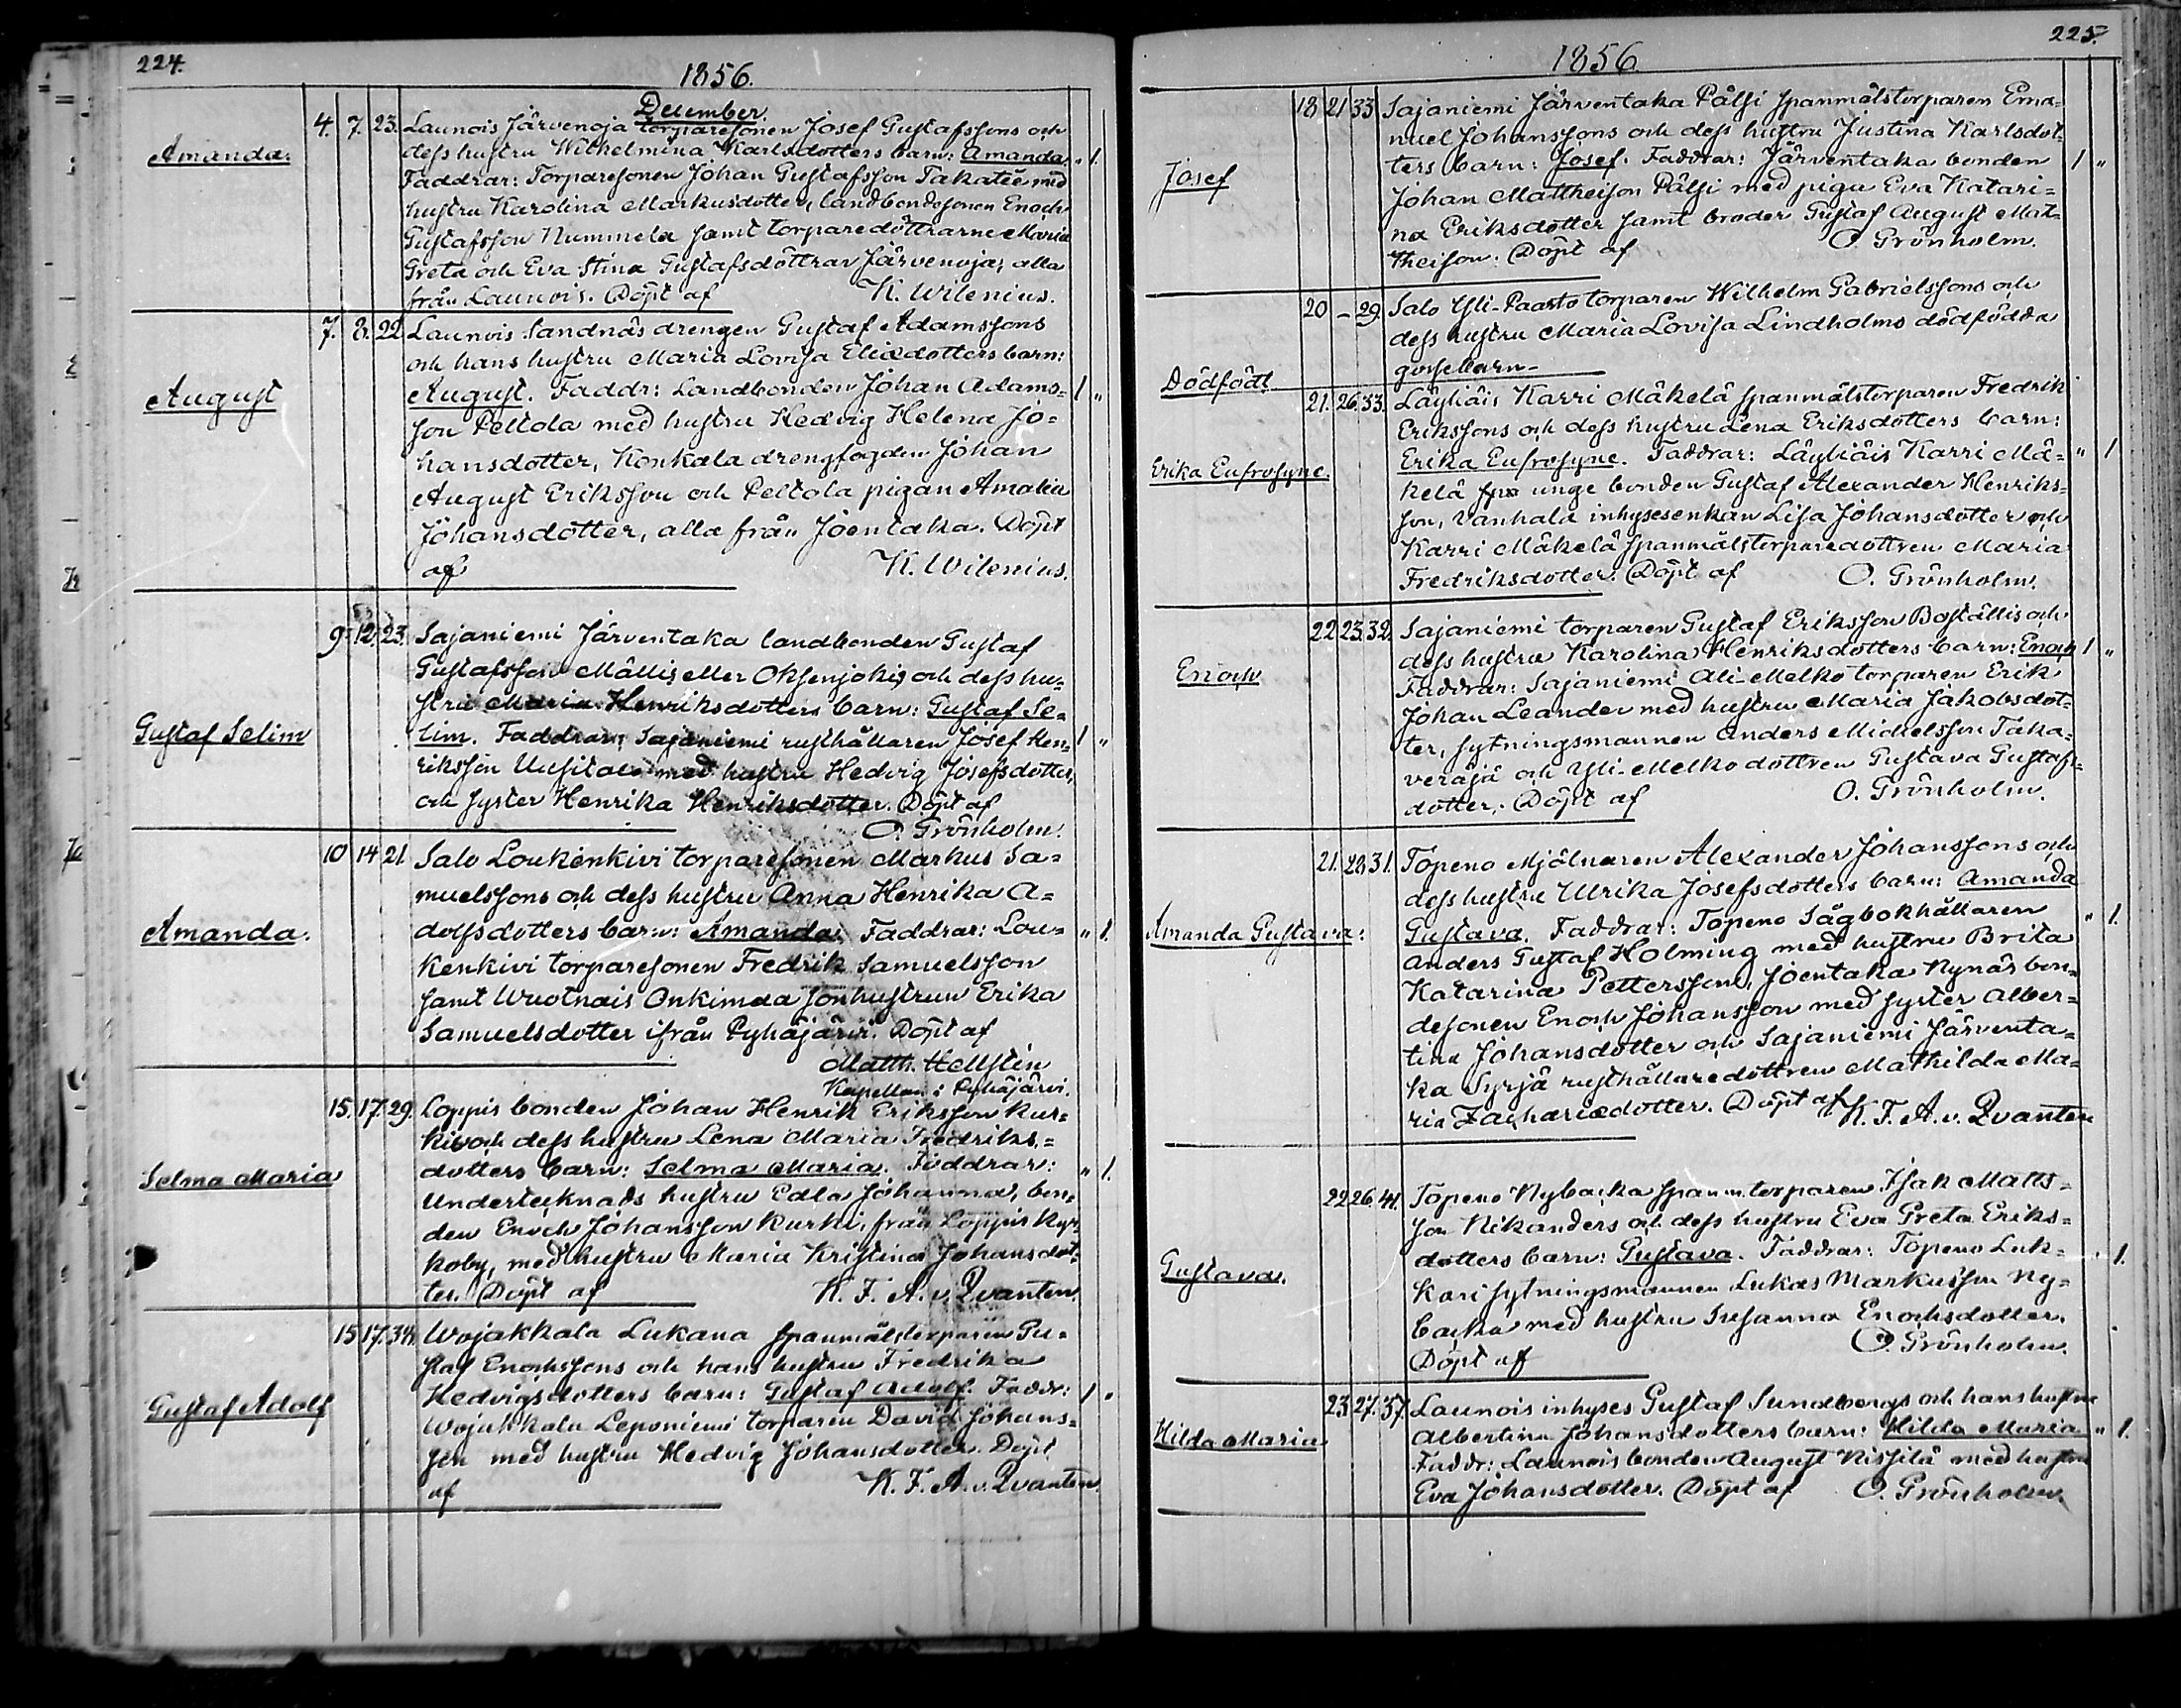 224.
1856.
December.
Amanda.
4. 7. 23. Launois Järvenoja torparesonen Josef Gustafssons och
dess hustru Wilhelmina Karlsdotters barn: Amanda. " 1.
Faddrar: Torparesonen Johan Gustafsson Takatee med
hustru Karolina Markusdotter, landbondesonen Enoch
Gustafsson Nummela samt torparedöttrarne Maria
Greta och Eva Stina Gustafsdöttrar Järvenoja, alla
från Launois. Döpt af K. Wilenius.
7. 8. 22. Launois Sandnäs drengen Gustaf Adamssons
och hans hustru Maria Lovisa Eliædotters barn:
August
August. Faddr: Landbonden Johan Adams= 1 "
son Peltola med hustru Hedvig Helena Jo=
hansdotter, Konkala drengfogden Johan
August Eriksson och Peltola pigan Amalia
Johansdotter, alla från Joentaka. Döpt
af K. Wilenius.
9. 12. 23. Sajaniemi Järventaka landbonden Gustaf
Gustafsson Mällis eller Oksenjokis och dess hu=
stru Maria Henriksdotters barn: Gustaf Se=
Gustaf Selim
lim. Faddrar: Sajaniemi rusthållaren Josef Hen= 1 "
riksson Uusitalo med hustru Hedvig Josefsdotter,
och syster Henrika Henriksdotter. Döpt af
O. Grönholm.
10 14 21. Salo Loukenkivi torparesonen Markus Sa=
muelssons och dess hustru Anna Henrika A=
Amanda.
dolfsdotters barn: Amanda. Faddrar: Lou= " 1.
kenkivi torparesonen Fredrik Samuelsson
samt Wuotnais Onkimaa sonhustrun Erika
Samuelsdotter ifrån Pyhäjärvi. Döpt af
Matth. Hellstén
Kapellan i Pyhäjärvi.
15. 17. 29. Loppis bonden Johan Henrik Eriksson Kur=
kis och dess hustru Lena Maria Fredriks=
Selma Maria
dotters barn: Selma Maria. Faddrar: " 1.
Undertecknads hustru Edla Johanna, bon=
den Enoch Johansson Kurki, från Loppis Kyr=
koby, med hustru Maria Kristina Johansdot=
ter. Döpt af K. F. A. v. Qvanten.
15 17. 34. Wojakkala Lukana spanmålstorparen Gu=
staf Enochssons och hans hustru Fredrika
Gustaf Adolf
Hedvigsdotters barn: Gustaf Adolf. Faddr: 1 "
Wojakkala Leponiemi torparen David Johans=
son med hustru Hedvig Johansdotter. Döpt
af K. F. A. v. Qvanten.
225.
1856.
18 21 33 Sajaniemi Järventaka Pälsi spanmålstorparen Ema=
nuel Johanssons och dess hustru Justina Karlsdot=
Josef
ters barn: Josef. Faddrar: Järventaka bonden 1 "
Johan Mattheison Pälsi med piga Eva Katari=
na Eriksdotter samt broder Gustaf August Mat=
theison. Döpt af O. Grönholm.
20 – 29. Salo Yli-Paasto torparen Wilhelm Gabrielssons och
dess hustru Maria Lovisa Lindholms dödfödda
Dödfödt
gossebarn–
21. 26. 33. Läyliäis Karri Mäkelä spanmålstorparen Fredrik
Erikssons och dess hustru Lena Eriksdotters barn:
Erika Eufrosyne.
Erika Eufrosyne. Faddrar: Läyliäis Karri Mä= " 1
kelä unge bonden Gustaf Alexander Henriks=
son, Vanhala inhysesenkan Lisa Johansdotter och
Karri Mäkelä spanmålstorparedottren Maria
Fredriksdotter. Döpt af O. Grönholm.
22 23. 32. Sajaniemi torparen Gustaf Eriksson Boställis och
dess hustru Karolina Henriksdotters barn: Enoch 1 "
Enoch
Faddrar: Sajaniemi Ali-Melko torparen Erik
Johan Leander med hustru Maria Jakobsdot=
ter, sytningsmannen Anders Michelsson Taka=
veräjä och Yli-Melko dottren Gustava Gustafs=
dotter. Döpt af O. Grönholm.
21. 28. 31. Topeno Mjölnaren Alexander Johanssons och
dess hustru Ulrika Josefsdotters barn: Amanda
Amanda Gustava:
Gustava. Faddrar: Topeno Sågbokhållaren " 1.
Anders Gustaf Holming med hustru Brita
Katarina Pettersson, Joentaka Nynäs bon=
desonen Enoch Johansson med syster Alber=
tina Johansdotter och Sajaniemi Järventa=
ka Syrjä rusthållaredottren Mathilda Ma=
ria Zachariædotter. Döpt af K. F. A. v. Qvanten
22 26. 41. Topeno Nybacka spanm. torparen Isak Matts=
son Nikanders och dess hustru Eva Greta Eriks=
Gustava.
dotters barn: Gustava. Faddrar: Topeno Luk= " 1.
kari sytningsmannen Lukas Markusson Ny=
backa med hustru Susanna Enochsdotter.
Döpt af O. Grönholm.
23. 27. 37. Launois inhyses Gustaf Sundbergs och hans hustru
Hilda Maria
Albertina Johansdotters barn: Hilda Maria " 1.
Faddr: Launois bonden August Nissilä med hustru
Eva Johansdotter. Döpt af O. Grönholm.